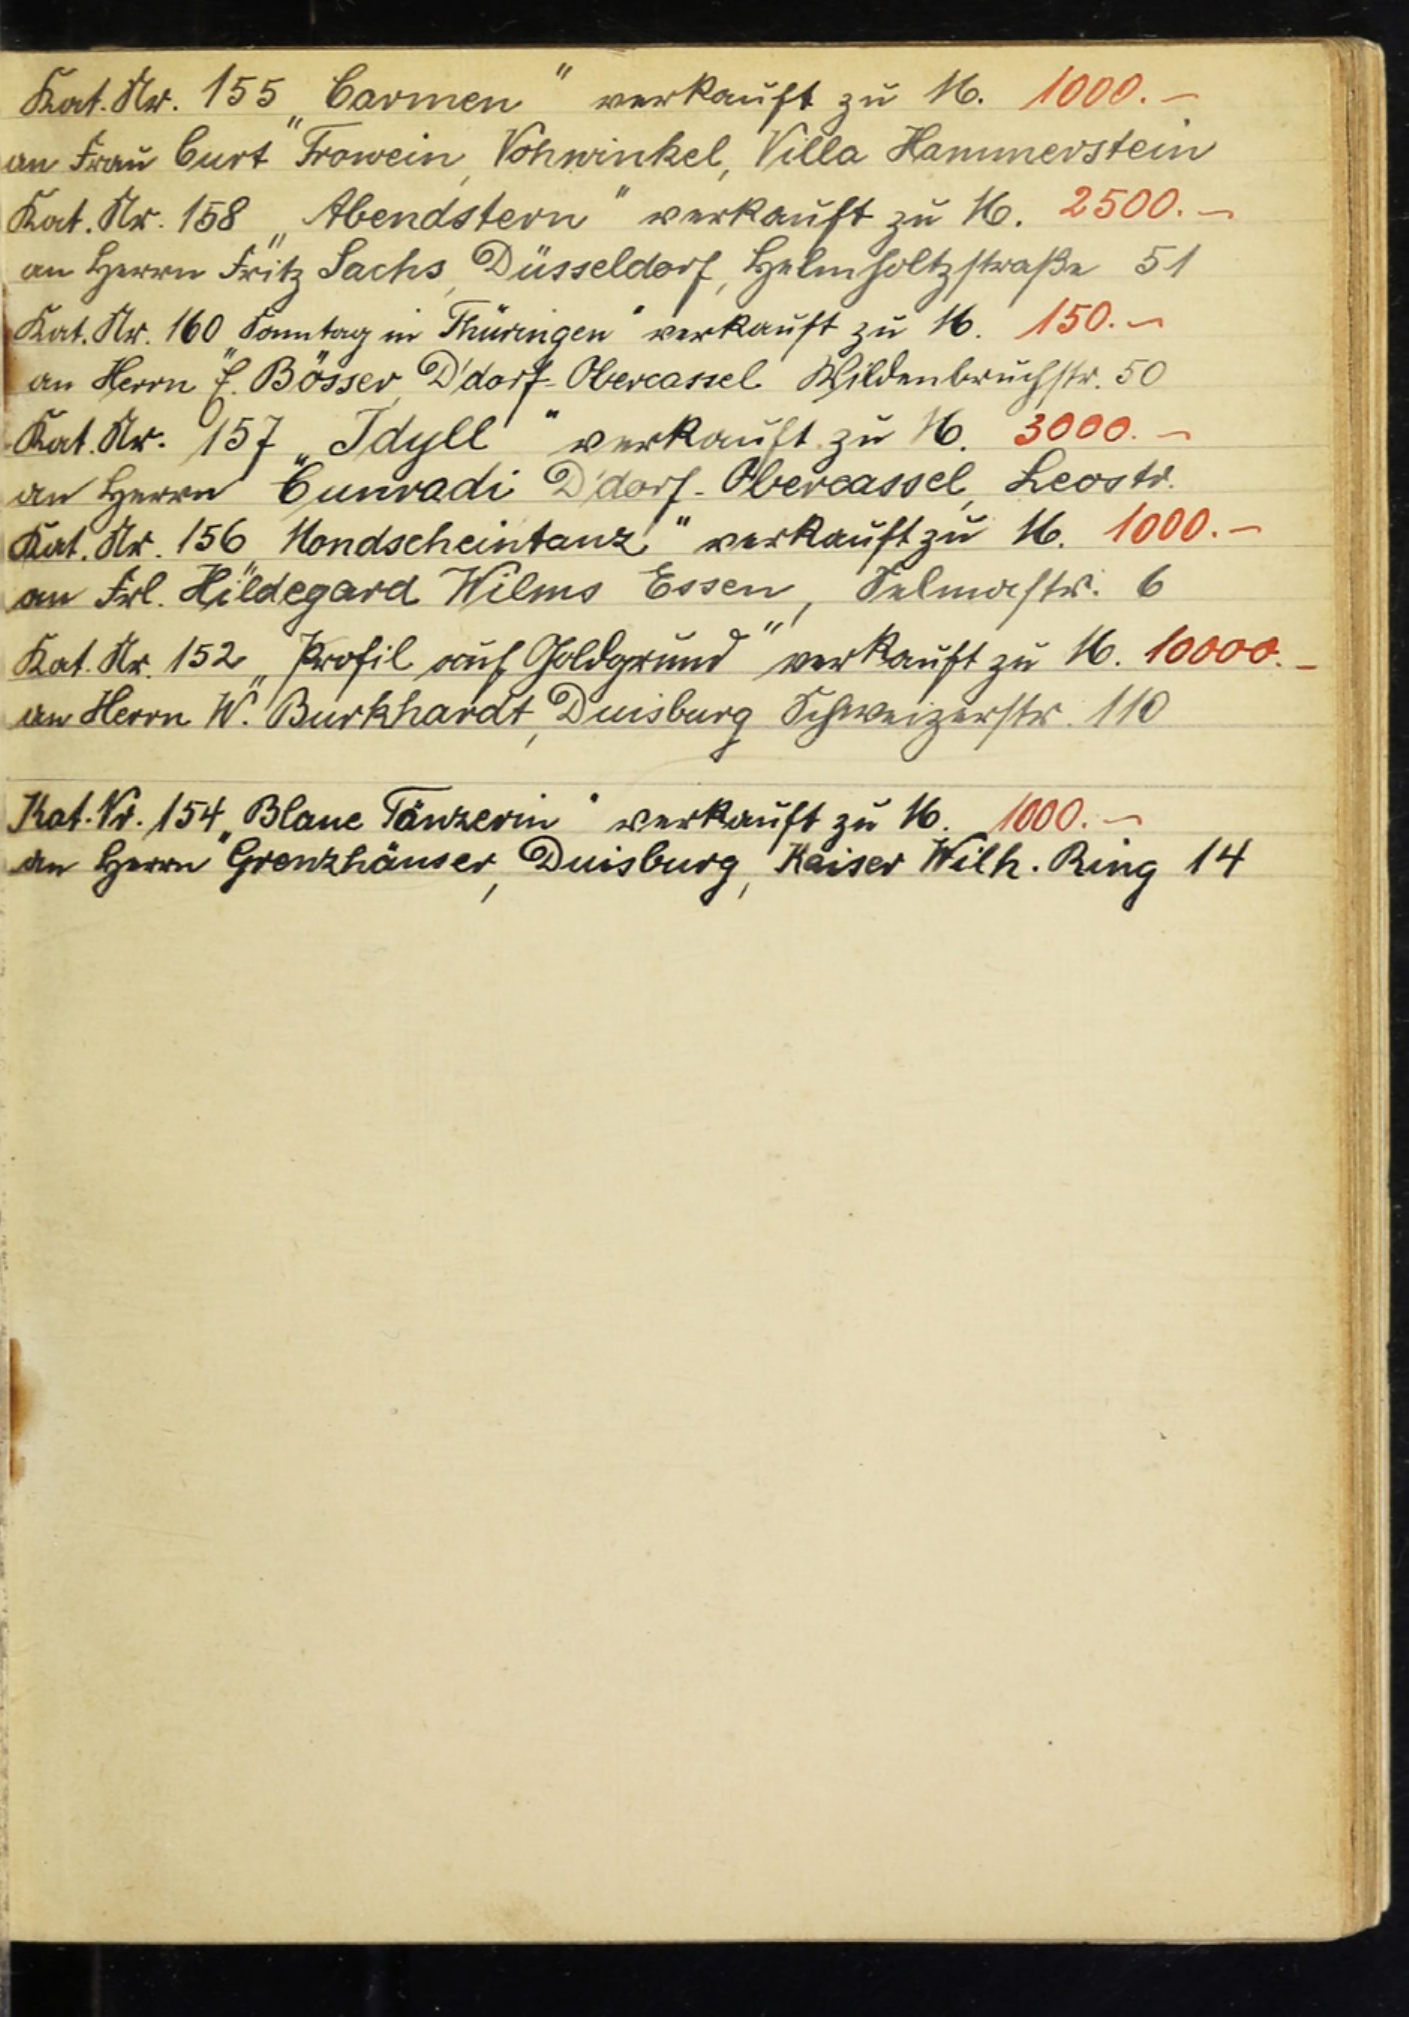 Kat. Nr. 155 „Carmen" verkauft zu M. 1000.–
an Frau Curt Frowein, Vohwinkel, Villa Hammerstein
Kat. Nr. 158 „Abendstern" verkauft zu M. 2500.–
an Herrn Fritz Sachs, Düsseldorf, Helmholtzstraße 51
Kat. Nr. 160 „Sonntag in Thüringen" verkauft zu M. 150.–
an Herrn E. Bösser, D'dorf-Obercassel Wildenbruchstr. 50
Kat. Nr. 157 „Idyll" verkauft zu M. 3000.–
an Herrn Cunradi D'dorf-Obercassel, Leostr.
Kat. Nr. 156 „Mondscheintanz" verkauft zu M. 1000.–
an Frl. Hildegard Wilms Essen, Selmastr. 6
Kat. Nr. 152 „Profil auf Goldgrund" verkauft zu M. 10000.–
an Herrn W. Burkhardt, Duisburg Schweizerstr. 110
Kat. Nr. 154 „Blaue Tänzerin" verkauft zu M. 1000.–
an Herrn Grenzhäuser, Duisburg, Kaiser Wilh. Ring 14